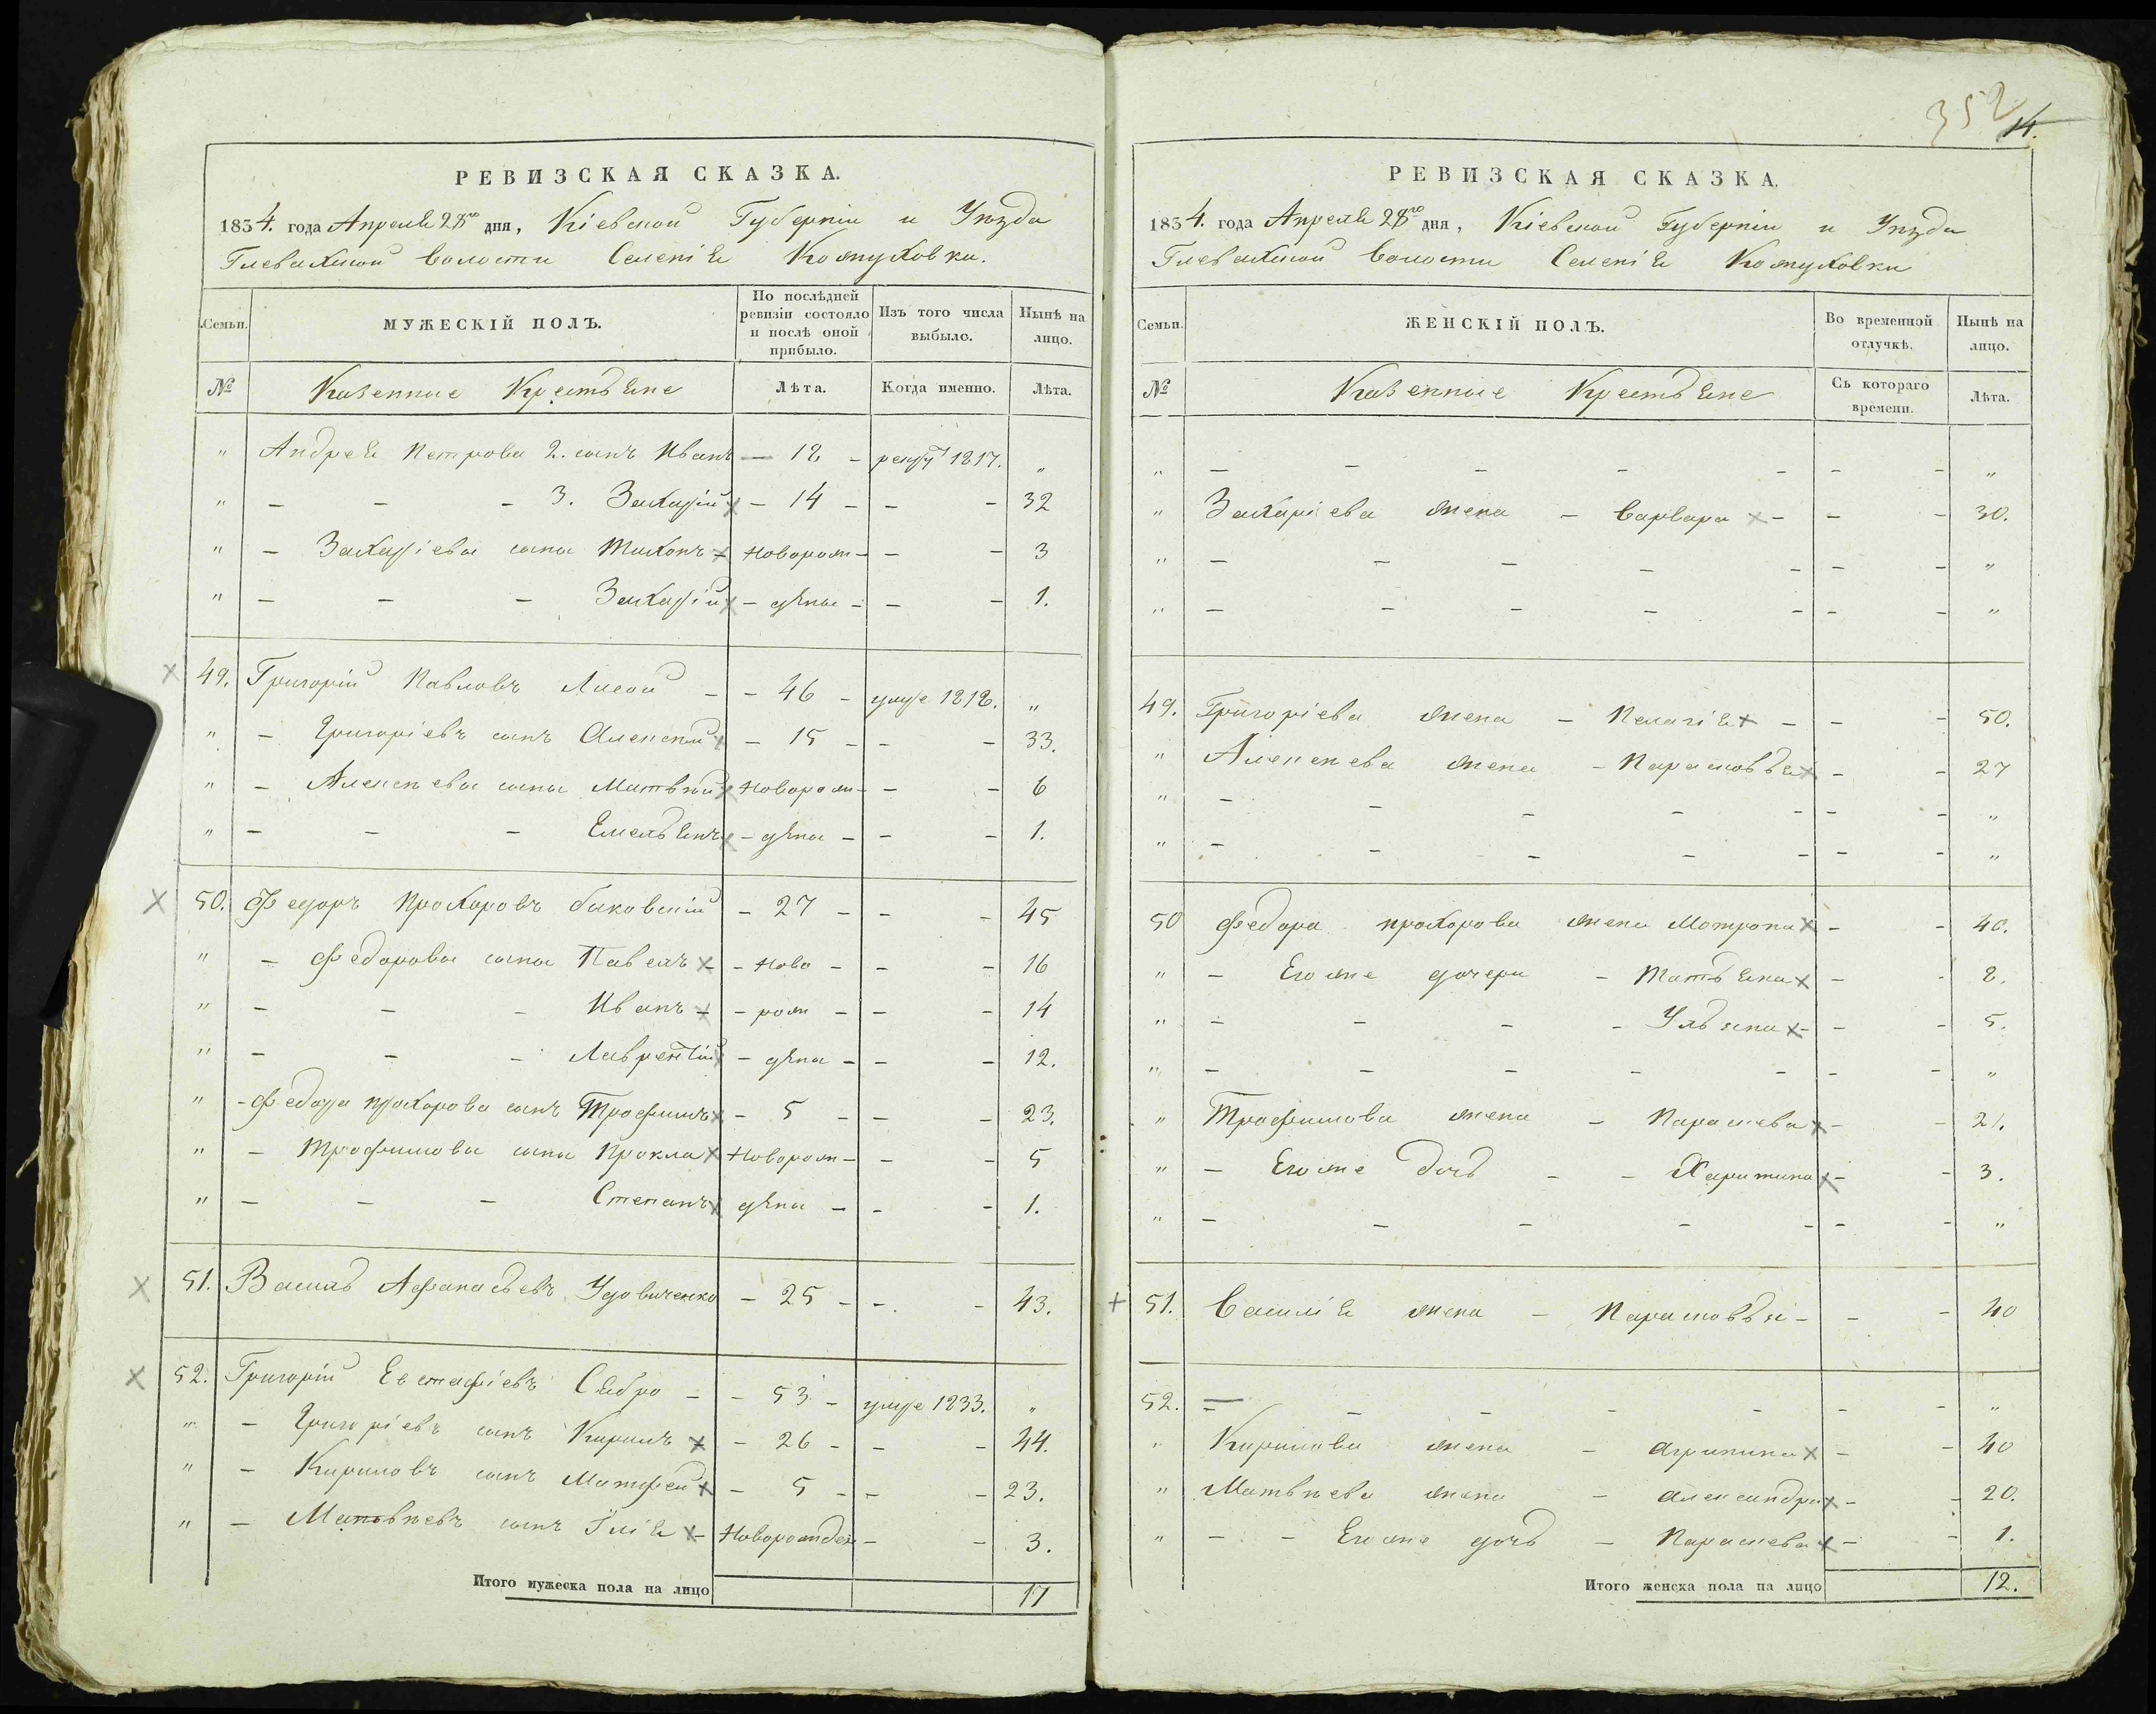 352
14.
РЕВИЗСКАЯ СКАЗКА.
1834. года Апреля 28го дня, Кіевской Губерніи и Уѣзда
Глевахской волости Селенія Кожуховки.
Семьи. МУЖЕСКІЙ ПОЛЪ. По послѣдней ревизіи состояло и послѣ оной прибыло. Изъ того числа выбыло. Нынѣ на лицо.
№ Казенные Крестьяне Лѣта. Когда именно. Лѣта.
" Андрея Петрова 2. сынъ Иванъ — 18 – 1817. "
" – – – 3. Захарій – 14 – – – 32
" – Захаріева сына Тихонъ – Новорож – – – 3
" – – – Захарій – дѣна – – – 1.
49. Григорій Павловъ Лисой – – 46 – умре 1818. "
" – Григоріевъ сынъ Алексей – 15 – – – 33.
" – Алексеева сына Матвѣй Новорож – – – 6
" – – – Емельянъ – дѣна – – – 1.
50. Федоръ Прохоровъ Быковскій – 27 – – – 45
" – Федорова сына Павелъ – – Ново – – – 16
" – – – Иванъ – – рож – – – 14
" – – – Лаврентій – дѣна – – – 12.
" – Федора Прохорова сынъ Трофимъ – 5 – – – 23.
" – Трофимова сына Прокла Новорож – – – 5
" – – – Степанъ дѣна – – – 1.
51. Василь Афанасьевъ Удовиченко – 25 – – – 43.
52. Григорій Евстафіевъ Сябро – – 53 – умре 1833. "
" – Григоріевъ сынъ Кирилъ – 26 – – – 44.
" – Кириловъ сынъ Матфей – 5 – – – 23.
" – Матвѣевъ сынъ Ілія – Новорожден – – 3.
Итого мужеска пола на лицо 17
РЕВИЗСКАЯ СКАЗКА.
1834. года Апреля 28го дня, Кіевской Губерніи и Уѣзда
Глевахской волости Селенія Кожуховки
Семьи. ЖЕНСКІЙ ПОЛЪ. Во временной отлучкѣ. Нынѣ на лицо.
№ Казенные Крестьяне Съ котораго времени. Лѣта.
" – – – – – – – "
" Захаріева жена – Варвара – – – 30.
" – – – – – – – "
" – – – – – – – "
49. Григоріева жена – Пелагія – – – 50.
" Алексеева жена – Парасковья – – 27
" – – – – – – – "
" – – – – – – – "
50 Федора прохорова жена Мотрона – – 40.
" – Его же дочери – Татьяна – – 8.
" – – – – Ульяна – – – 5.
" – – – – – – – "
" Трофимова жена – Параскева – – 21.
" – Его же дочь – – Харитина – – 3.
" – – – – – – – "
51. Василія жена – Парасковья – – – 40
52. – – – – – – – "
" Кирилова жена – Агрипина – – 40
" Матвѣева жена – Александра – – 20.
" – – Его же дочь – Параскева – – 1.
Итого женска пола на лицо 12.